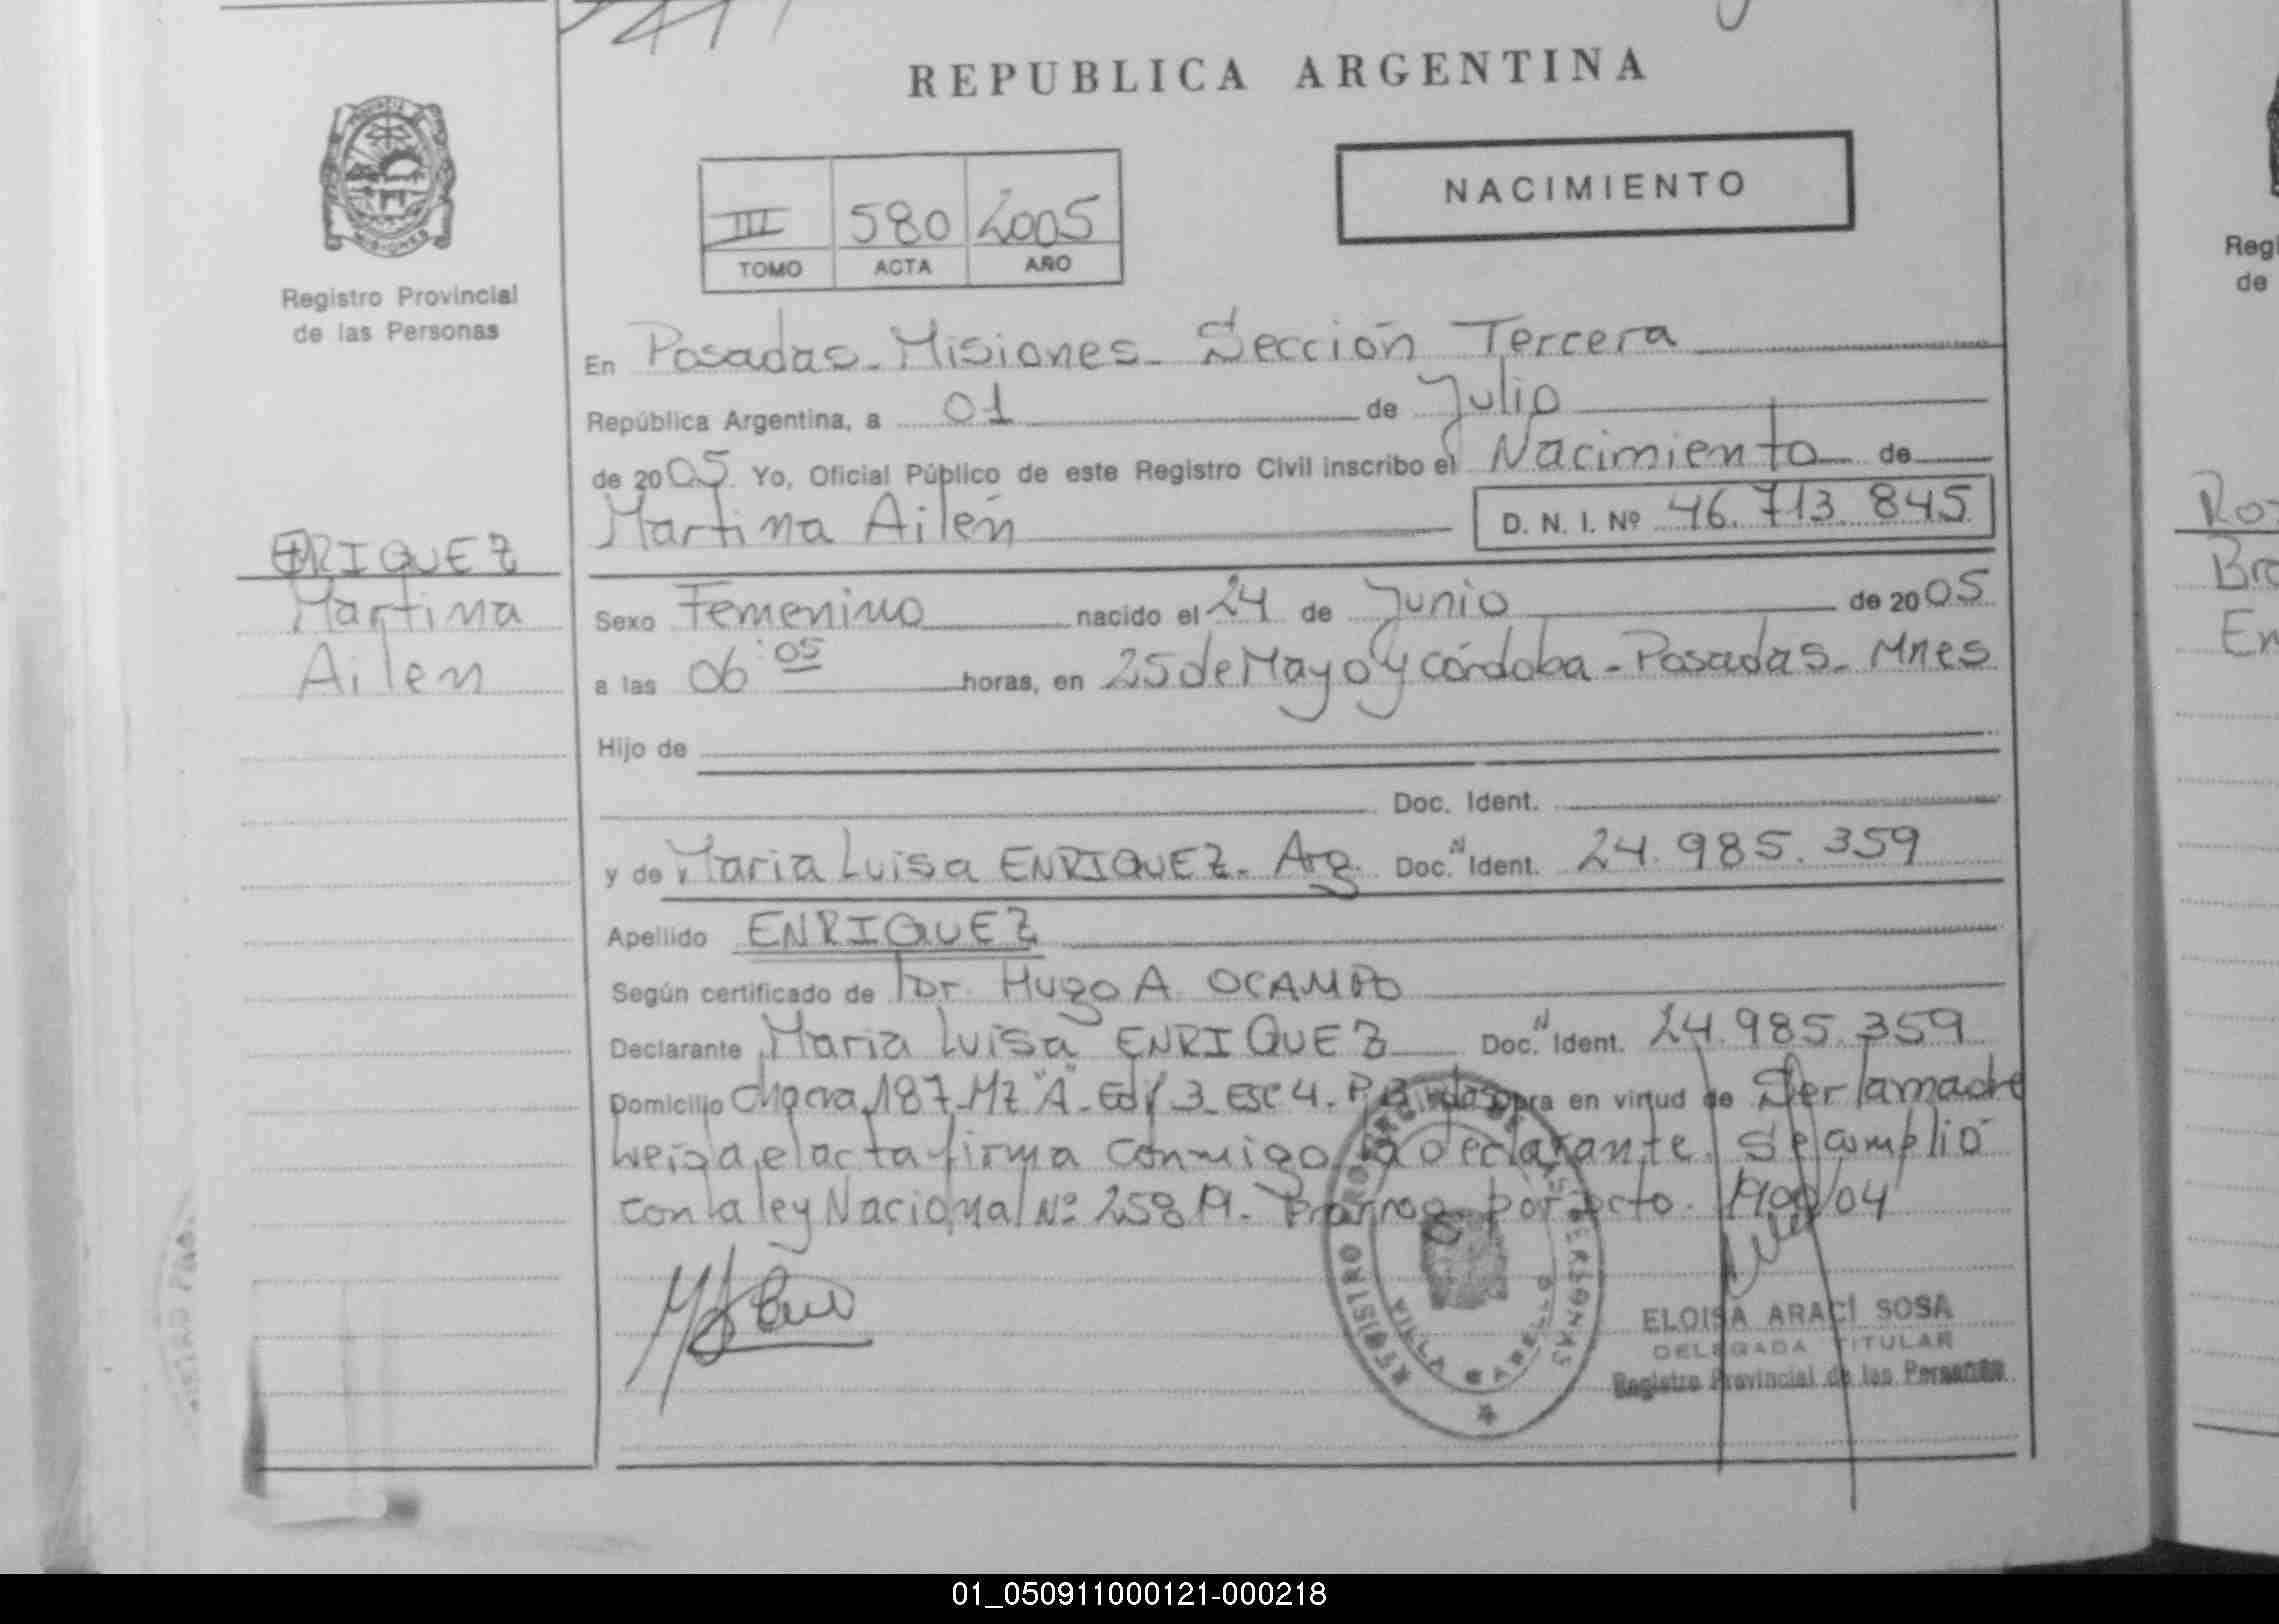 REPUBLICA ARGENTINA
NACIMIENTO
III 580 2005
TOMO ACTA AÑO
PROVINCIA
MISIONES
Registro Provincial
de las Personas
En Posadas - Misiones - Sección Tercera
República Argentina, a 01 de Julio
de 2005 Yo, Oficial Público de este Registro Civil inscribo el Nacimiento de
Martina Ailén D. N. I. Nº 46.713.845
ENRIQUEZ
Martina
Ailen
Sexo Femenino nacido el 24 de Junio de 2005
a las 06:05 horas, en 25 de Mayo y Córdoba - Posadas - Mnes
Hijo de
Doc. Ident.
y de Maria Luisa ENRIQUEZ - Arg. Doc. N Ident. 24.985.359
Apellido ENRIQUEZ
Según certificado de Dr. Hugo A. OCAMPO
Declarante Maria Luisa ENRIQUEZ Doc. N Ident. 24.985.359
Domicilio Chacra 187 - Mz "A" - Edf 3 - Esc 4 - P.B. obra en virtud de Ser la madre
leida el acta firma conmigo la declarante. Se cumplió
con la ley Nacional Nº 25819 - Prorrog. por Dcto. 1900/04
REGISTRO PROVINCIAL DE LAS PERSONAS
VILLA CABELLO
ELOISA ARACÍ SOSA
DELEGADA TITULAR
Registro Provincial de las Personas
Regi
de
Bro
Em
01_050911000121-000218